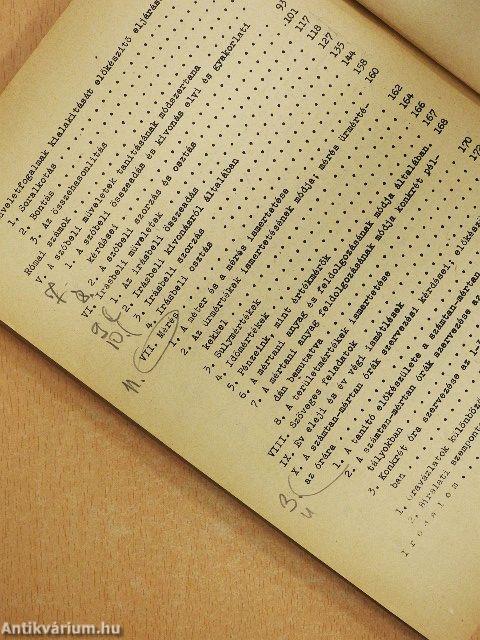 űveletfogalmák kialakitását előkészítő eljárás
1. Soralkotás
2. Bontás 93
3. Az összehasonlitás 101
Római számok 117
V. A szóbeli müveletek tanításának módszertana 118
1. A szóbeli összeadás és kivonás elvi és gyakorlati
kérdései 127
2. A szóbeli szorzás és osztás 135
VI. Irásbeli müveletek 144
1. Az irásbeli összeadás
2. Irásbeli kivonásról általában 158
3. Irásbeli szorzás 160
4. Irásbeli osztás
VII. Mérés 162
1. A méter és a mérés ismertetése 164
2. Az ürmértékek ismertetésének módja; mérés ürmérté-
kekkel 166
3. Sulymértékek 167
4. Időmértékek 168
5. Pénzeink, mint értékmérők
6. A mértani anyag és feldolgozásának módja általában 170
7. A mértani anyag feldolgozásának módja konkrét pél-
dán bemutatva
8. A területmértékek ismertetése
VIII. Szöveges feladatok
IX. Év eleji és év végi ismétlések
X. A számtan-mértan órák szervezési kérdései előkész
az órára
1. A tanító előkészülete a számtan-mértan
2. A számtan-mértan órák szervezése az
tályokban
3. Konkrét óra szervezése az I-I
ban
1. Óravázlatok különböző
2. Birálati szempont
Irodalom
7.
8.
9.
10.
11.
3.
Antikvárium.hu